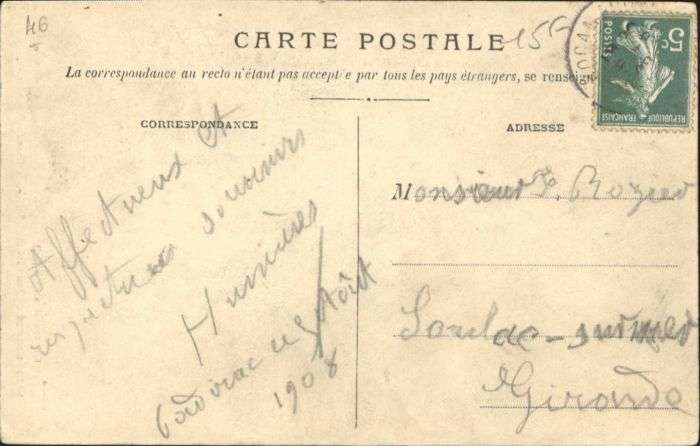 46
CARTE POSTALE
15F
La correspondance au recto n'étant pas acceptée par tous les pays étrangers, se renseign
5c
POSTES
REPUBLIQUE FRANÇAISE
CORRESPONDANCE
Affectueux et
respectueux souvenirs
Humières
Padirac le 4 Août
1908
ADRESSE
Monsieur E. Rozier
Soulac-sur-mer
Gironde